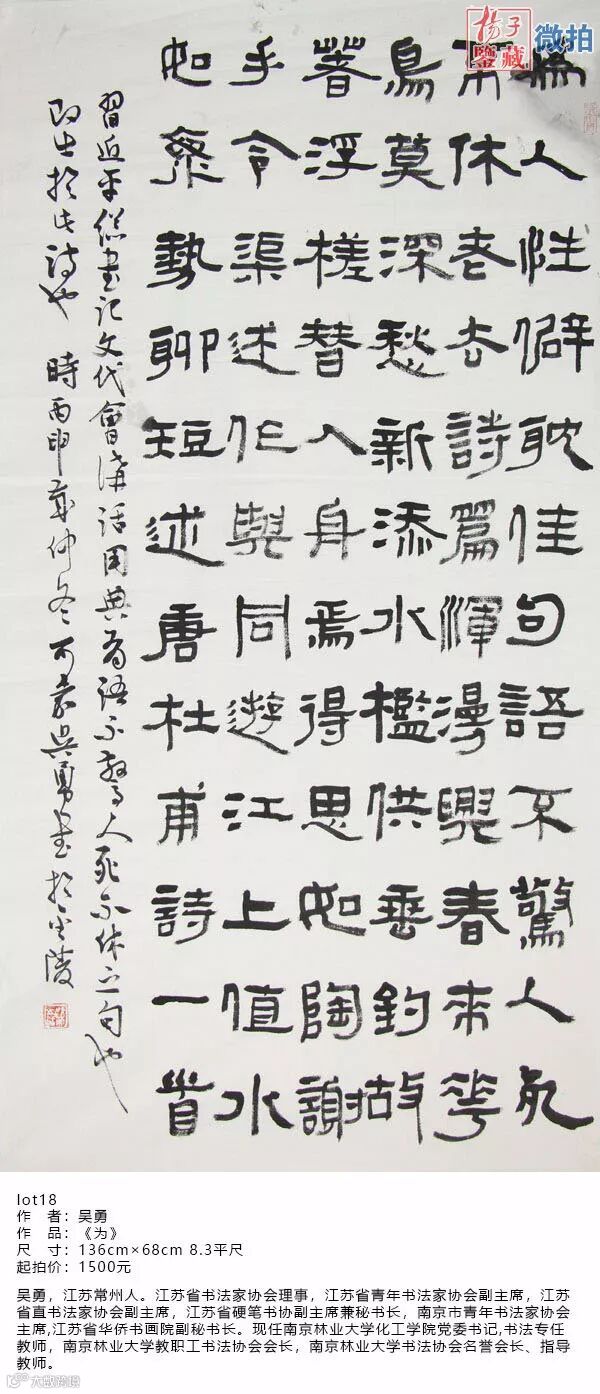 揚子
鑒藏
微拍
為人性僻耽佳句語不驚人死
不休老去詩篇渾漫興春來花
鳥莫深愁新添水檻供垂釣故
著浮槎替入身焉得思如陶謝
手令渠述作與同遊江上值水
如勢聊短述唐杜甫詩一首
習近平總書記文代會講話用典為語不驚人死不休之句也
即出於此詩也 時丙申歲仲冬吳勇書於金陵
lot18
作 者：吴勇
作 品：《为》
尺 寸：136cm×68cm 8.3平尺
起拍价：1500元
吴勇，江苏常州人。江苏省书法家协会理事，江苏省青年书法家协会副主席，江苏
省直书法家协会副主席，江苏省硬笔书协副主席兼秘书长，南京市青年书法家协会
主席,江苏省华侨书画院副秘书长。现任南京林业大学化工学院党委书记,书法专任
教师，南京林业大学教职工书法协会会长，南京林业大学书法协会名誉会长、指导
教师。